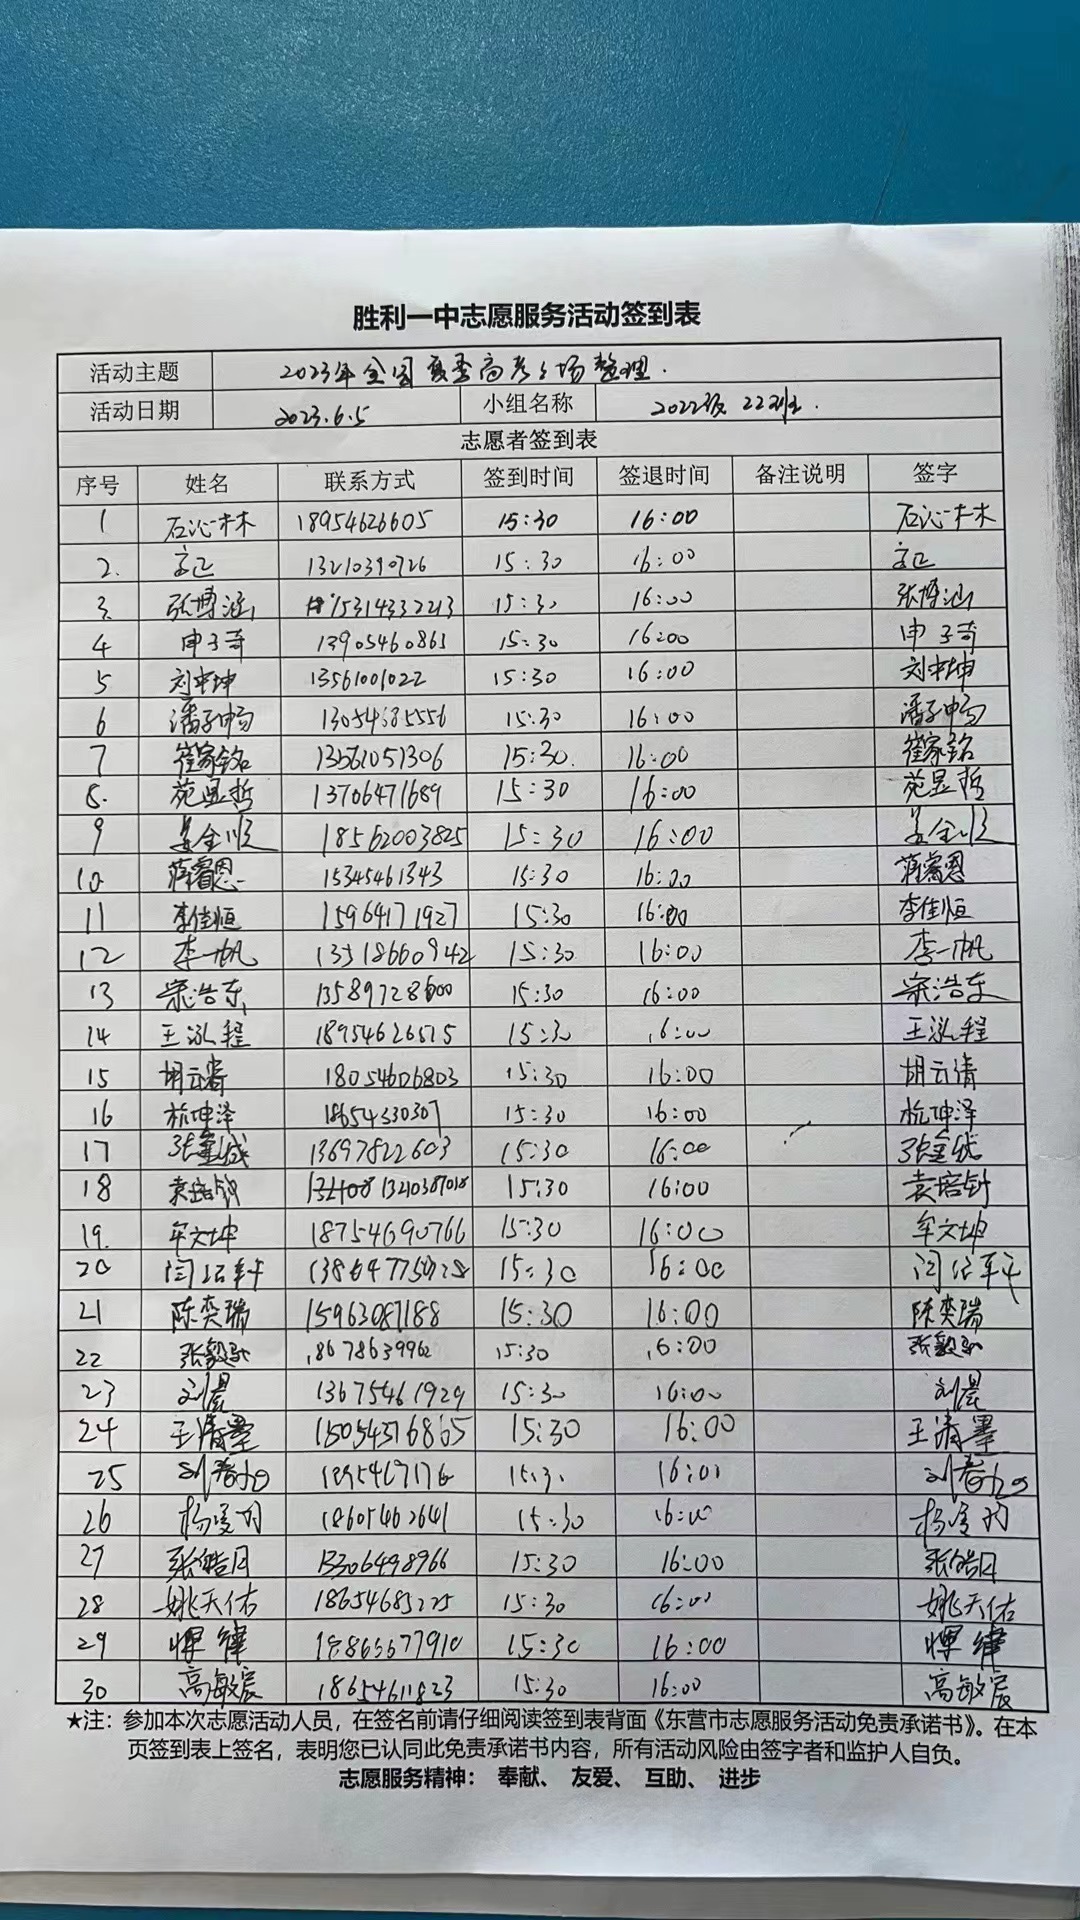 胜利一中志愿服务活动签到表
活动主题 2023年全国夏季高考考场整理.
活动日期 2023.6.5 小组名称 2022级 22班.
志愿者签到表
序号 姓名 联系方式 签到时间 签退时间 备注说明 签字
1 石沁木木 18954626605 15:30 16:00 石沁木木
2. 13210390726 15:30 16:00
3. 张博涵 15314333213 15:30 16:00 张博涵
4 申子奇 13905460863 15:30 16:00 申子奇
5 刘中坤 13561001022 15:30 16:00 刘中坤
6 潘子畅 15:30 16:00 潘子畅
7 崔家铭 13561051306 15:30. 16:00 崔家铭
8. 苑昱哲 13706471689 15:30 16:00 苑昱哲
9 姜全顺 18562003825 15:30 16:00 姜全顺
10 蒋睿恩 15345461343 15:30 16:00 蒋睿恩
11 李佳恒 15964171927 15:30 16:00 李佳恒
12 李一帆 15:30 16:00 李一帆
13 宋浩东 13589728600 15:30 16:00 宋浩东
14 王泓程 18954626515 15:30 16:00 王泓程
15 胡云清 18054606803 15:30 16:00 胡云清
16 杭坤泽 18654330307 15:30 16:00 杭坤泽
17 13697822603 15:30 16:00
18 袁培钊 13210387018 15:30 16:00 袁培钊
19. 牟文坤 18754690766 15:30 16:00 牟文坤
20 15:30 16:00
21 陈奕瑞 15963087188 15:30 16:00 陈奕瑞
22 18678639962 15:30 16:00
23 刘晨 13675461929 15:30 16:00 刘晨
24 王清墨 15054376865 15:30 16:00 王清墨
25 16:00
26 18605462641 15:30 16:00
27 张皓月 13306498966 15:30 16:00 张皓月
28 姚天佑 18654683225 15:30 16:00 姚天佑
29 恽律 15:30 16:00 恽律
30 高敏宸 18654611823 15:30 16:00 高敏宸
★注：参加本次志愿活动人员，在签名前请仔细阅读签到表背面《东营市志愿服务活动免责承诺书》。在本
页签到表上签名，表明您已认同此免责承诺书内容，所有活动风险由签字者和监护人自负。
志愿服务精神： 奉献、 友爱、 互助、 进步